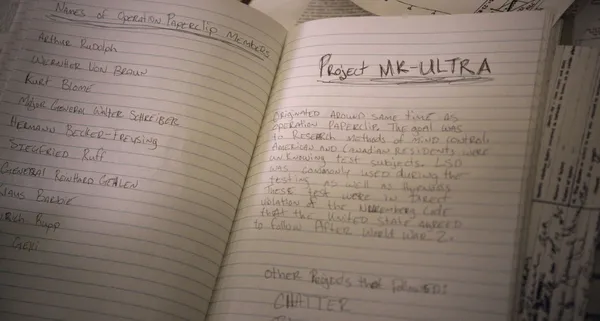 Names of Operation Paperclip Members
Arthur Rudolph
Wernher Von Braun
Kurt Blome
Major General Walter Schreiber
Hermann Becker-Freysing
Siegfried Ruff
General Reinhard Gehlen
Klaus Barbie
Rupp
Project MK-ULTRA
ORIGINATED AROUND SAME TIME AS
OPERATION PAPERCLIP. THE GOAL WAS
to RESEARCH METHODS OF MIND CONTROL.
AMERICAN AND CANADIAN RESIDENTS WERE
UNKNOWING TEST SUBJECTS. LSD
WAS COMMONLY USED DURING THE
TESTING AS WELL AS
THESE TEST WERE IN DIRECT
VIOLATION OF THE CODE
that the UNITED STATE AGREED
TO FOLLOW AFTER WORLD WAR 2.
Other Projects that followED:
CHATTER